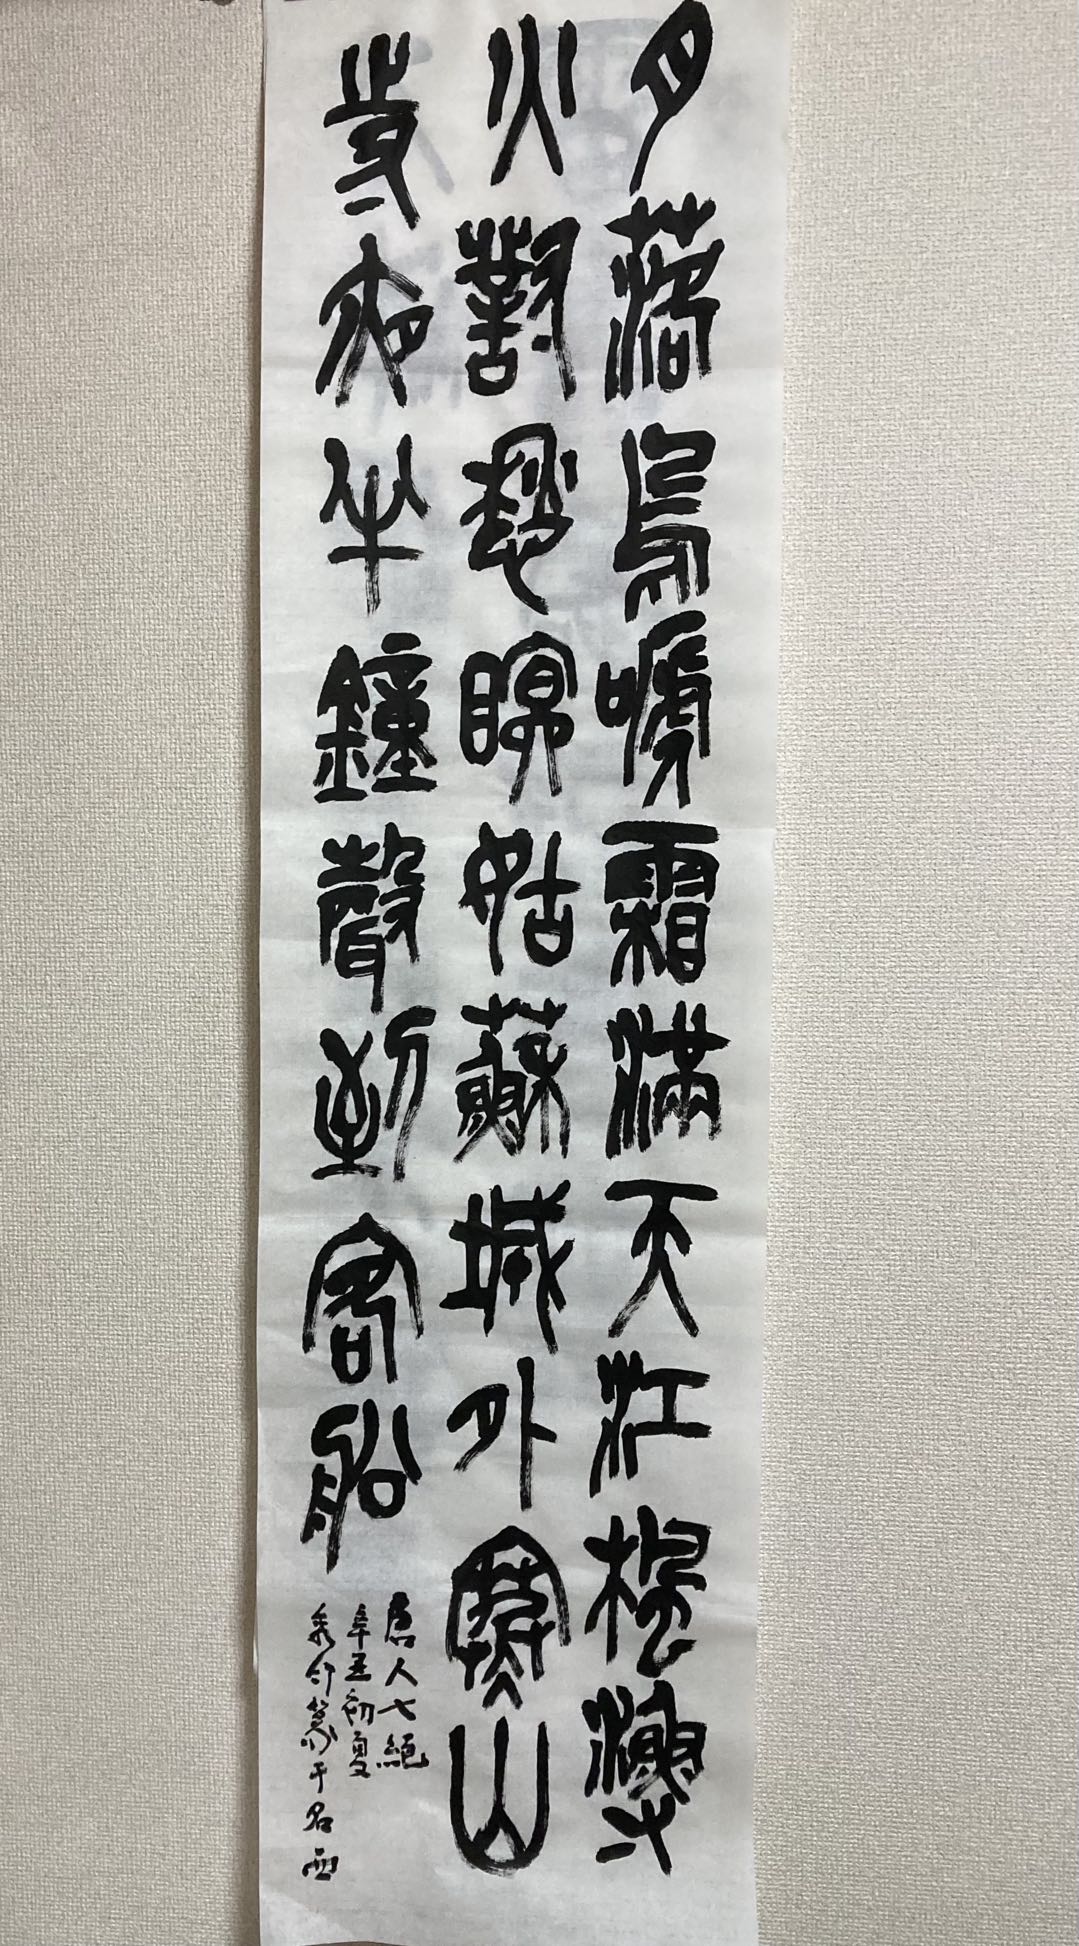 月落烏嗁霜滿天江楓漁
火對愁瞑姑蘇城外寒山
寺夜半鐘聲到客船
唐人七絕
辛丑初夏
篆于名西